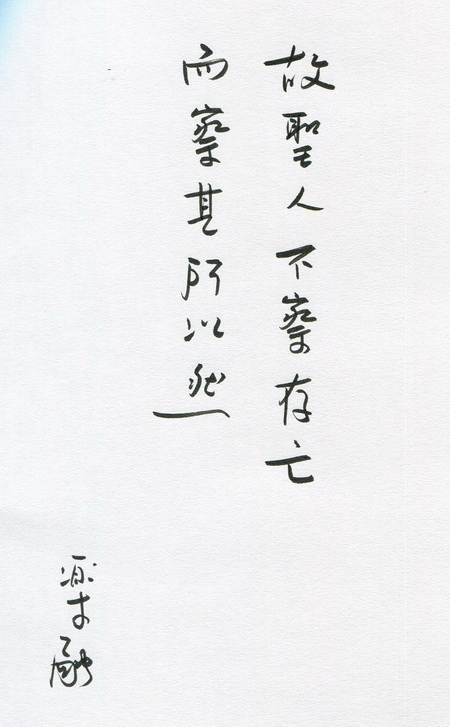 故聖人不察存亡
而察其所以然